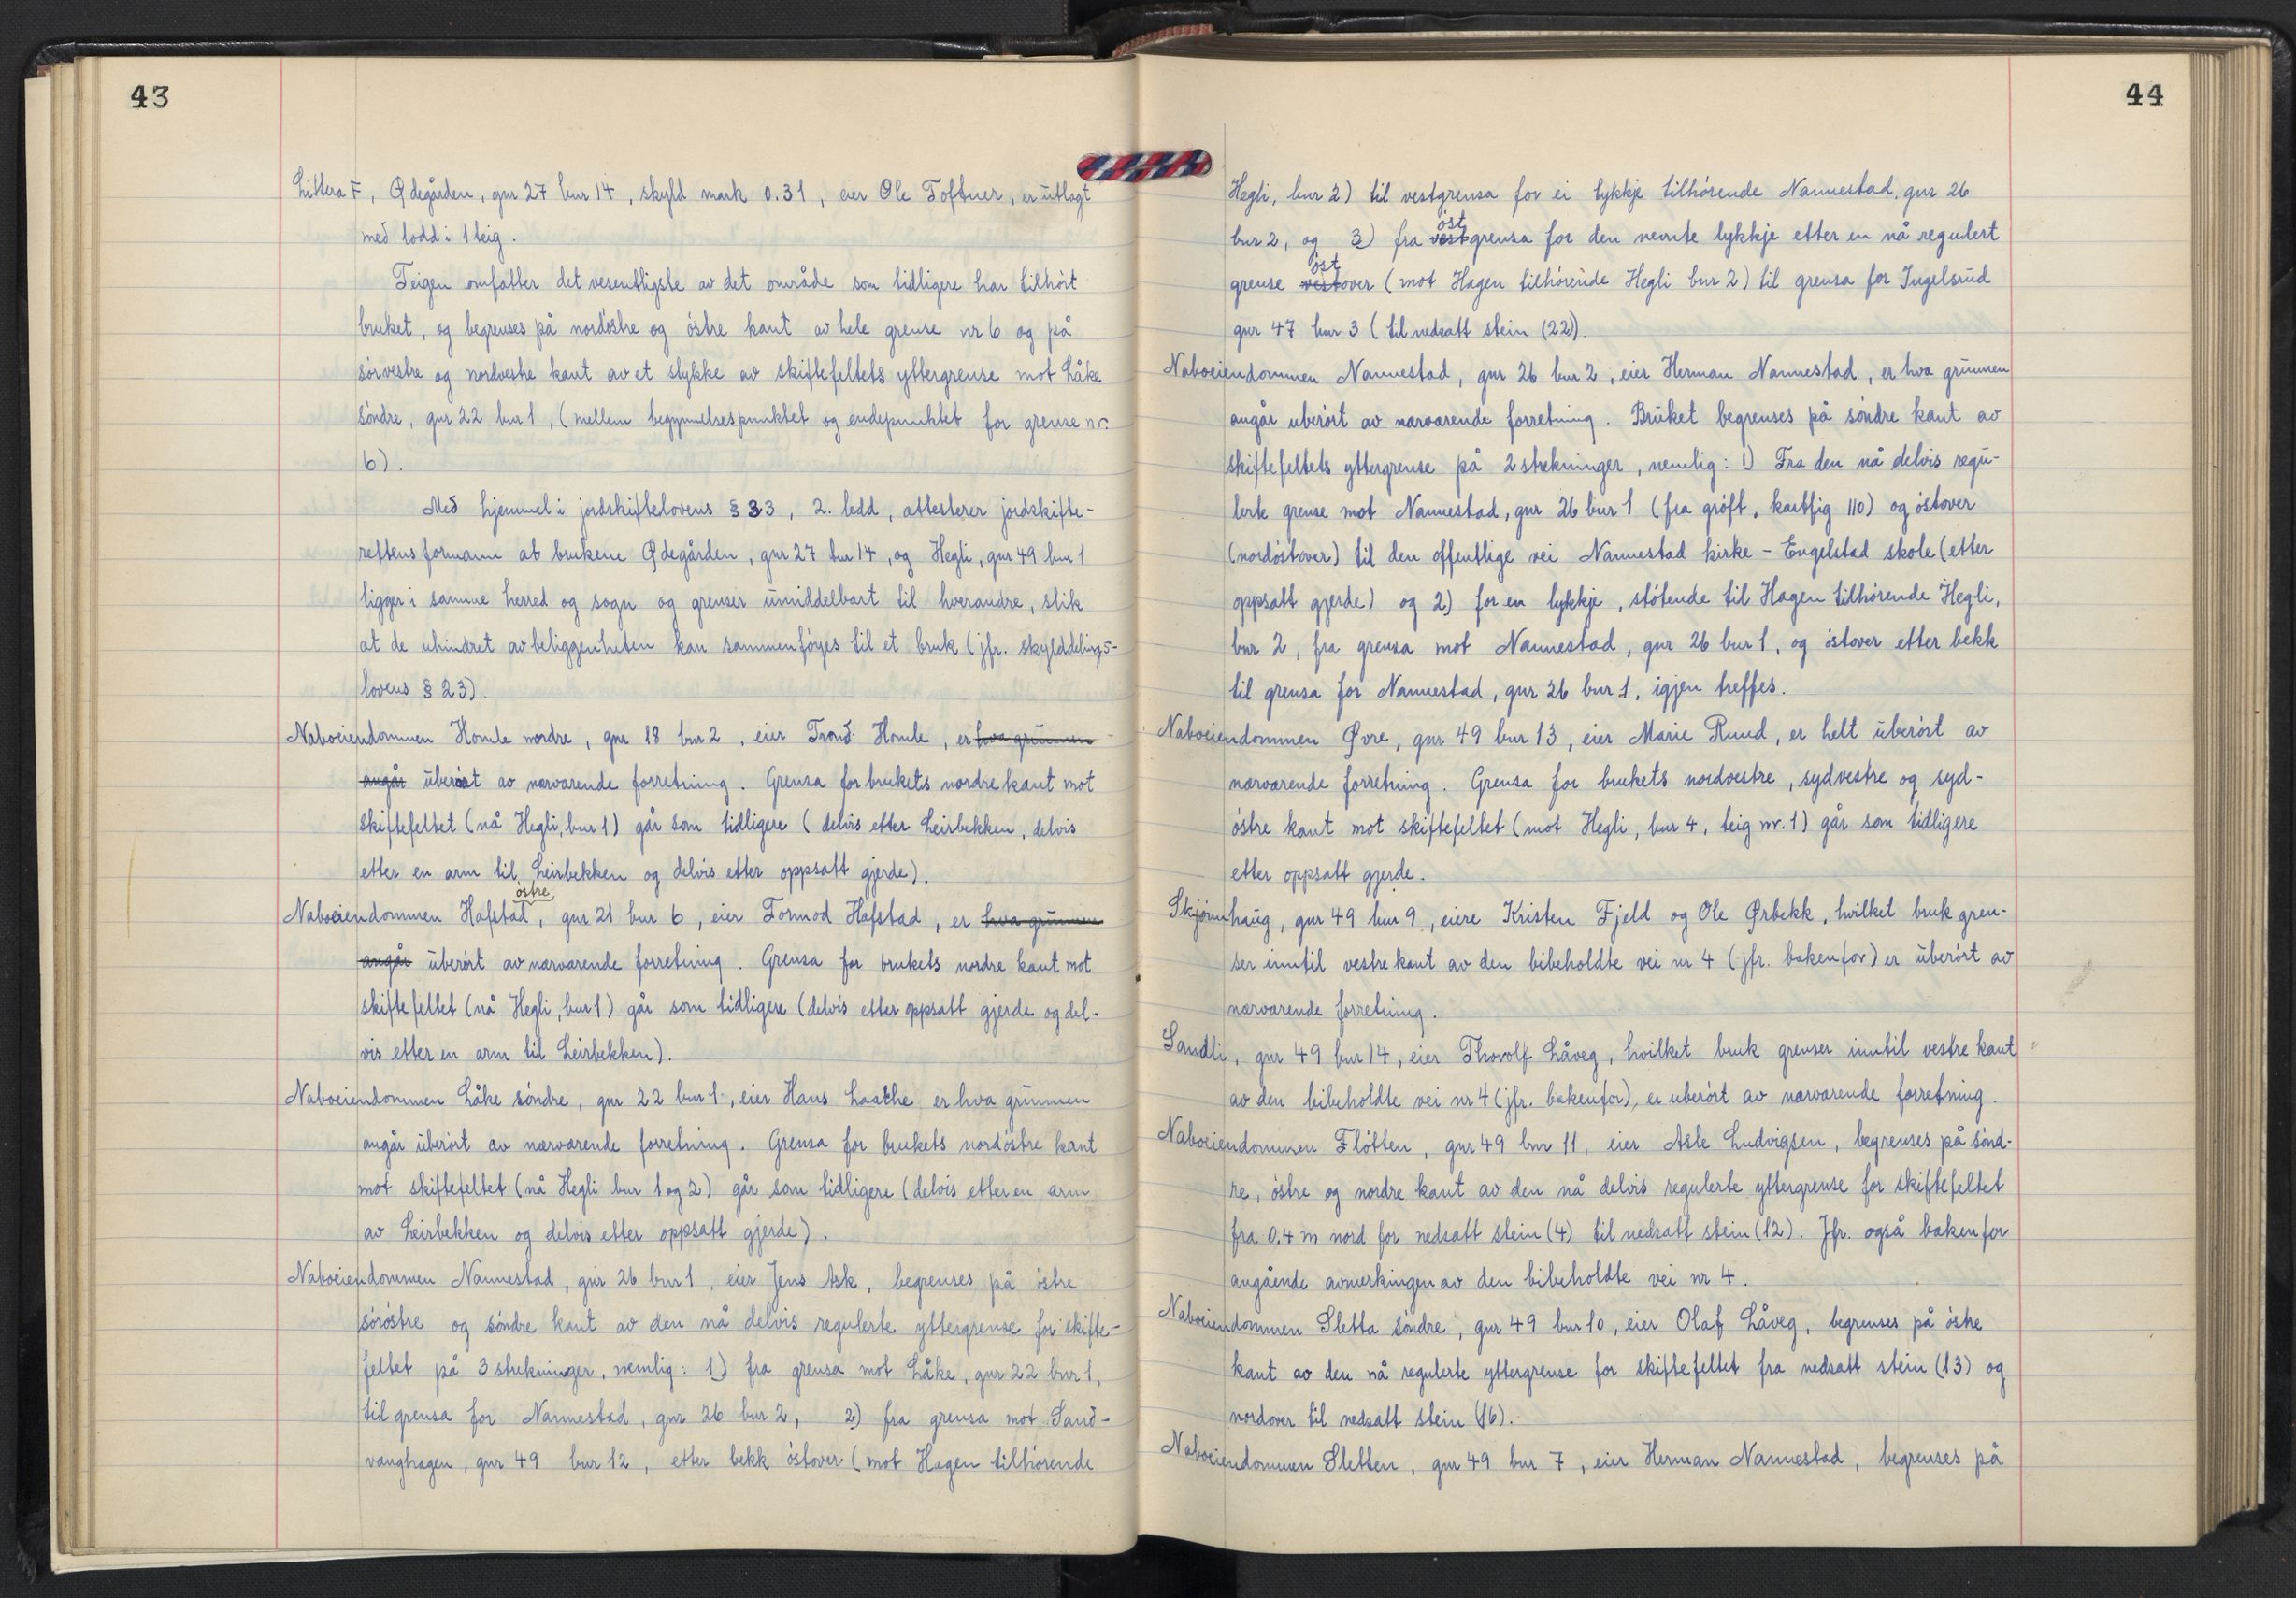 43
Littera F, Ødegården, gnr 27 bnr 14, skyld mark 0.31, eier Ole Toftner, er utlagt
med lodd i 1 teig.
Teigen omfatter det vesentligste av det område som tidligere har tilhört
bruket, og begrenses på nordöstre og östre kant av hele grense nr 6 og på
sörvestre og nordvestre kant av et stykke av skiftefeltets yttergrense mot Låke
söndre, gnr 22 bnr 1, (mellem begynnelsespunktet og endepunktet for grense nr.
6).
Med hjemmel i jordskiftelovens § 33, 2. ledd, attesterer jordskifte-
rettens formann at brukene Ødegården, gnr 27 bnr 14, og Hegli, gnr 49 bnr 1
ligger i samme herred og sogn og grenser umiddelbart til hverandre, slik
at de uhindret av beliggenheten kan sammenföyes til et bruk (jfr. skylddelings-
lovens § 23).
Naboeiendommen Homle nordre, gnr 18 bnr 2, eier Trond Homle, er hva grunnen
angår uberört av nærværende forretning. Grensa for brukets nordre kant mot
skiftefeltet (nå Hegli, bnr 1) går som tidligere (delvis etter Leirbekken, delvis
etter en arm til Leirbekken og delvis etter oppsatt gjerde).
Naboeiendommen Hafstad östre, gnr 21 bnr 6, eier Tormod Hafstad, er hva grunnen
angår uberört av nærværende forretning. Grensa for brukets nordre kant mot
skiftefeltet (nå Hegli, bnr 1) går som tidligere (delvis etter oppsatt gjerde og del-
vis etter en arm til Leirbekken).
Naboeiendommen Låke söndre, gnr 22 bnr 1, eier Hans Laache er hva grunnen
angår uberört av nærværende forretning. Grensa for brukets nordöstre kant
mot skiftefeltet (nå Hegli bnr 1 og 2) går som tidligere (delvis etter en arm
av Leirbekken og delvis etter oppsatt gjerde).
Naboeiendommen Nannestad, gnr 26 bnr 1, eier Jens Ask, begrenses på östre
söröstre og söndre kant av den nå delvis regulerte yttergrense for skifte-
feltet på 3 strekninger, nemlig: 1) fra grensa mot Låke, gnr 22 bnr 1,
til grensa for Nannestad, gnr 26 bnr 2, 2) fra grensa mot Sand-
vanghagen, gnr 49 bnr 12, etter bekk östover (mot Hagen tilhörende
44
Hegli, bnr 2) til vestgrensa for ei lykkje tilhörende Nannestad, gnr 26
bnr 2, og 3) fra vest öst grensa for den nevnte lykkje etter en nå regulert
grense vest öst over (mot Hagen tilhörende Hegli bnr 2) til grensa for Ingelsrud
gnr 47 bnr 3 (til nedsatt stein (22)).
Naboeiendommen Nannestad, gnr 26 bnr 2, eier Herman Nannestad, er hva grunnen
angår uberört av nærværende forretning. Bruket begrenses på söndre kant av
skiftefeltets yttergrense på 2 strekninger, nemlig: 1) Fra den nå delvis regu-
lerte grense mot Nannestad, gnr 26 bnr 1 (fra gröft, kartfig 110) og östover
(nordöstover) til den offentlige vei Nannestad kirke - Engelstad skole (etter
oppsatt gjerde) og 2) for en lykkje, stötende til Hagen tilhörende Hegli,
bnr 2, fra grensa mot Nannestad, gnr 26 bnr 1, og östover etter bekk
til grensa for Nannestad, gnr 26 bnr 1, igjen treffes.
Naboeiendommen Øvre, gnr 49 bnr 13, eier Marie Ruud, er helt uberört av
nærværende forretning. Grensa for brukets nordvestre, sydvestre og syd-
östre kant mot skiftefeltet (mot Hegli, bnr 4, teig nr. 1) går som tidligere
etter oppsatt gjerde.
Skjönnhaug, gnr 49 bnr 9, eiere Kristen Fjeld og Ole Ørbekk, hvilket bruk gren-
ser inntil vestre kant av den bibeholdte vei nr 4 (jfr. bakenfor) er uberört av
nærværende forretning.
Sandli, gnr 49 bnr 14, eier Thorolf Låveg, hvilket bruk grenser inntil vestre kant
av den bibeholdte vei nr 4 (jfr. bakenfor), er uberört av nærværende forretning.
Naboeiendommen Flötten, gnr 49 bnr 11, eier Asle Ludvigsen, begrenses på sönd-
re, östre og nordre kant av den nå delvis regulerte yttergrense for skiftefeltet
fra 0.4 m nord for nedsatt stein (4) til nedsatt stein (12). Jfr. også bakenfor
angående avmerkingen av den bibeholdte vei nr 4.
Naboeiendommen Sletta söndre, gnr 49 bnr 10, eier Olaf Låveg, begrenses på östre
kant av den nå regulerte yttergrense for skiftefeltet fra nedsatt stein (13) og
nordover til nedsatt stein (16).
Naboeiendommen Sletten, gnr 49 bnr 7, eier Herman Nannestad, begrenses på